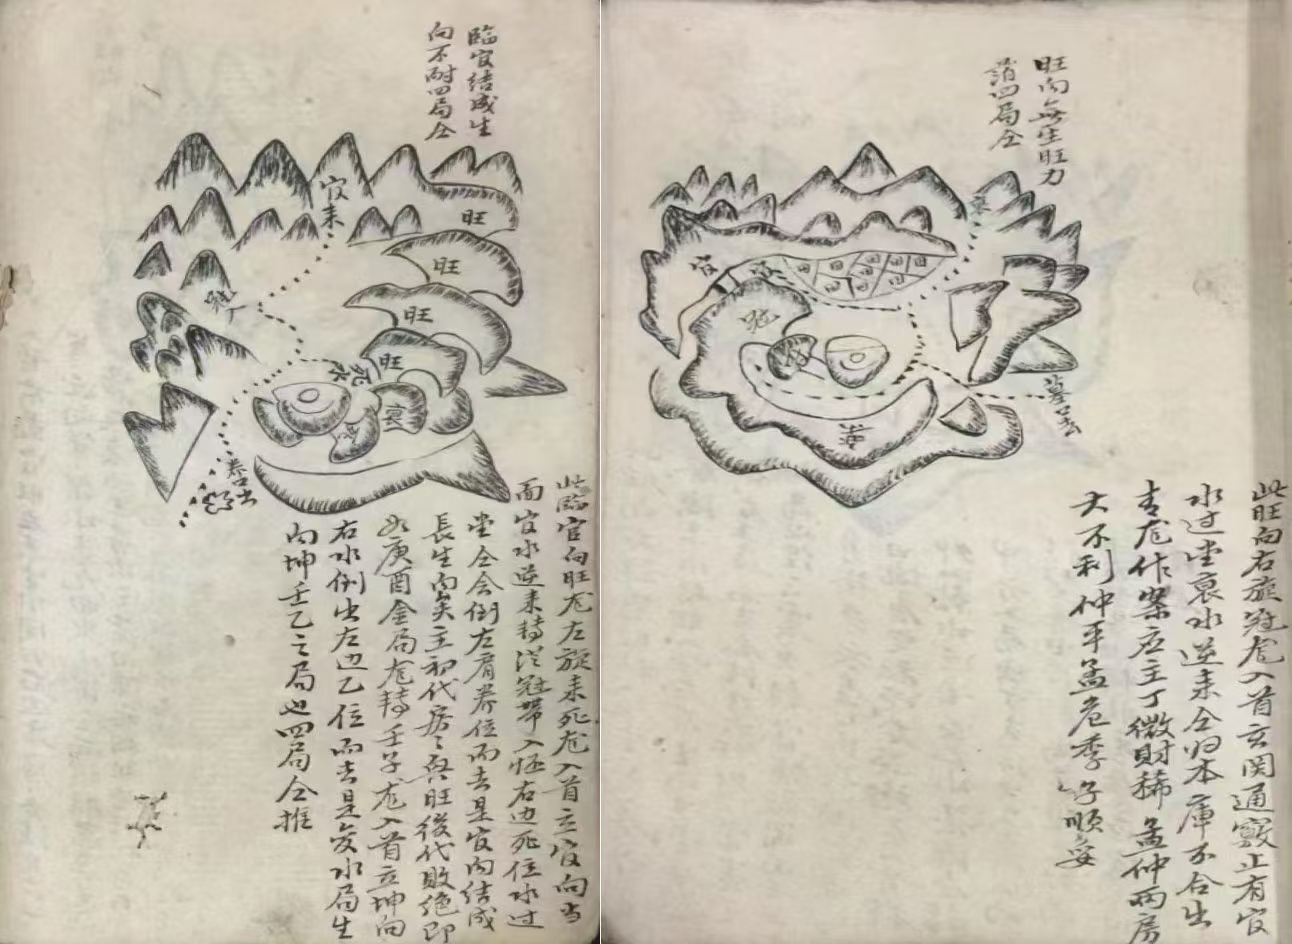 旺向無生旺力
諸四局仝
衰
官
官
冠
墓去
此旺向右旋冠龙入首玄関通竅止有官
水过堂衰水逆来仝归本庫不合出
青龙作案应主丁微財稀孟仲兩房
大不利仲平孟危季 順妥
臨官結成生
向不耐四局仝
官来
旺
旺
旺
旺
冠
死
水
衰
養去
此臨官向旺龙左旋来死龙入首立官向当
面官水逆来轉从冠帶入怀右边死位水过
堂仝会倒左肩养位而去是官向結成
長生向矣主初代房々興旺後代敗绝即
如庚酉金局龙轉壬子龙入首立坤向
右水倒出左边乙位而去是变水局生
向坤壬乙之局也四局仝推